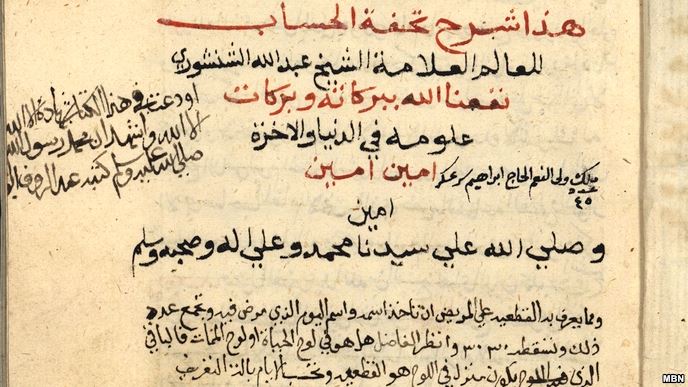 هذا شرح تحفة الحساب
للعالم العلامة الشيخ عبد الله الشنشوري
نفعنا الله ببركاته وبركات
علومه في الدنيا والاخرة
امين امين
امين
ملك ولى النعم الحاج ابراهيم سر عسكر
٤٥
اودعت في هذا الكتاب شهادة ان لا اله
الا الله واشهد ان محمد رسول الله
صلى الله عليه وسلم كتبه عبد
وصلي الله علي سيدنا محمد وعلي اله وصحبه وسلم
ومما يعرف به القطعيه علي المريض ان تاخذ اسمه واسم اليوم الذي مرض فيه وتجمع عدد
ذلك وتسقطه ٣٠ ٣٠ وانظر الفاضل هل هو في لوح الحياة او لوح الممات فالباقي
الذي في اللوح يكون منزله في اللوح هو القطعيه
MBN